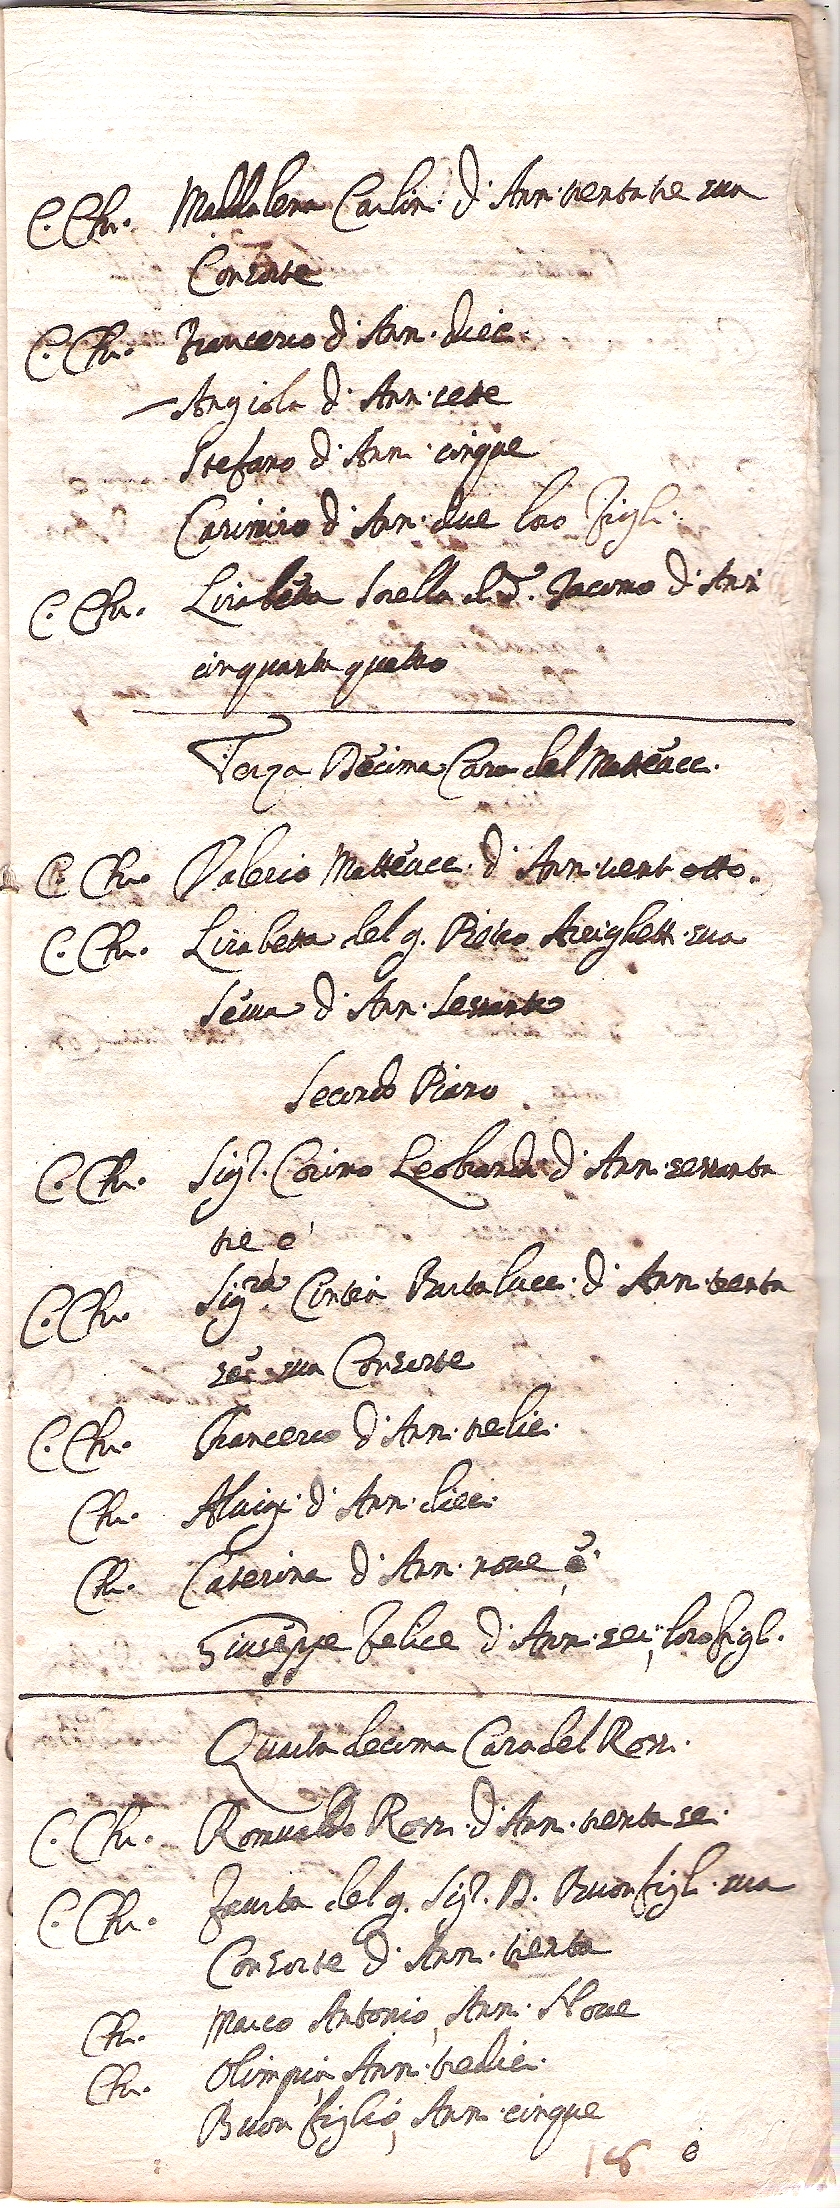 C. Chr. Maddalena Carlin. d'Ann. trenta tre sua
Consorte
C. Chr. Francesco d'Ann. diec.
Angiola d'Ann. sette
Stefano d'Ann. cinque
Casimiro d'Ann. due loro figl.
C. Chr. Lisabetta Sorella d. S. Jacomo d'Ann.
cinquanta quattro
Terza Decima Casa del Matteucc.
C. Chr. Valerio Matteucc. d'Ann. vent otto.
C. Chr. Lisabetta del q. Pietro Arrighett. sua
Serua d'Ann. Sessanta
Secondo Piano
C. Chr. Sigr. Cosimo Leobrandi d'Ann. sessanta
tre e
C. Chr. Sigra. Cintia Bartolucc. d'Ann. trenta
sei sua Consorte
C. Chr. Francesco d'Ann. tredic.
Chr. Aluigi d'Ann. diec.
Chr. Caterina d'Ann. noue e
Giuseppe Felice d'Ann. sei, loro figl.
Quarta decima Casa del Ross.
C. Chr. Romualdo Ross. d'Ann. trenta se.
C. Chr. Fausta del q. Sigr. B. Buonfigl. sua
Consorte d'Ann. trenta
Chr. Marco Antonio, Ann. Noue
Chr. Olimpia, Ann. tredic.
Buon figlio, Ann. cinque
18 e